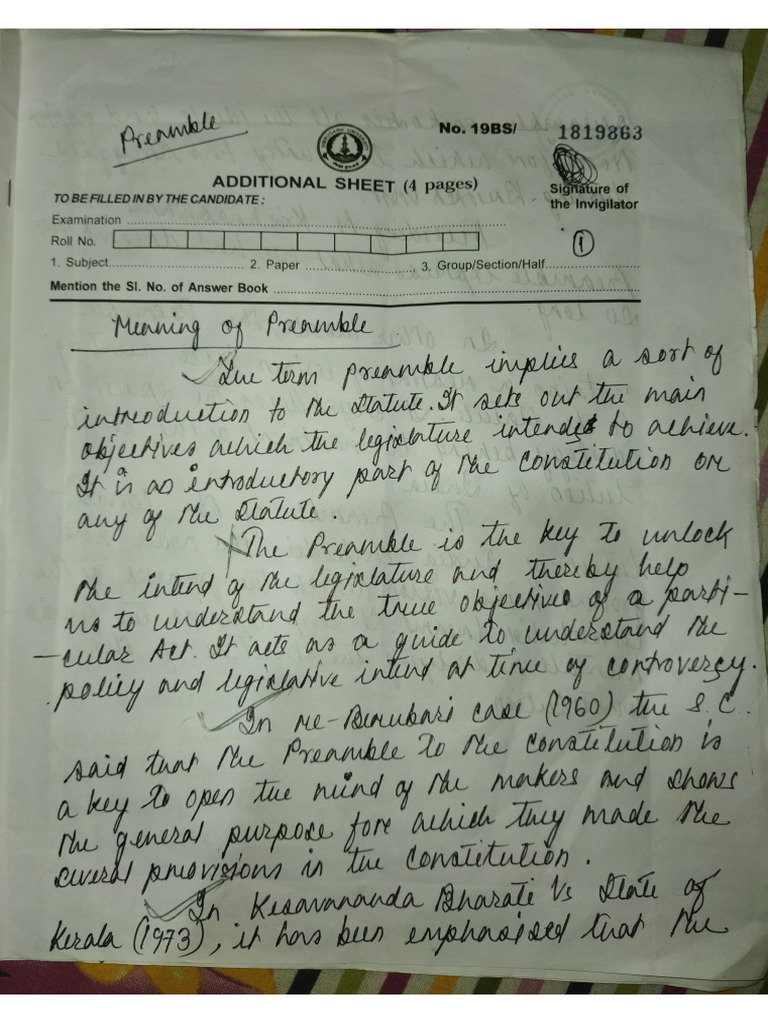 Preamble
No. 19BS/ 1819863
ADDITIONAL SHEET (4 pages)
Signature of
the Invigilator
TO BE FILLED IN BY THE CANDIDATE :
Examination
Roll No.
1
1. Subject 2. Paper 3. Group/Section/Half
Mention the Sl. No. of Answer Book
Meaning of Preamble.
The term preamble implies a sort of
introduction to the Statute. It sets out the main
objectives which the legislature intends to achieve.
It is as a introductory part of the constitution or
any of the Statute.
The Preamble is the key to unlock
the intend of the legislature and thereby help
us to understand the true objectives of a parti-
-cular Act. It acts as a guide to understand the
policy and legislative intend at time of controversy.
In re-Berubari case (1960) the S.C.
said that the Preamble to the constitution is
a key to open the mind of the makers and shows
the general purpose for which they made the
several provisions in the constitution.
In Kesavananda Bharati Vs State of
Kerala (1973), it has been emphasised that the